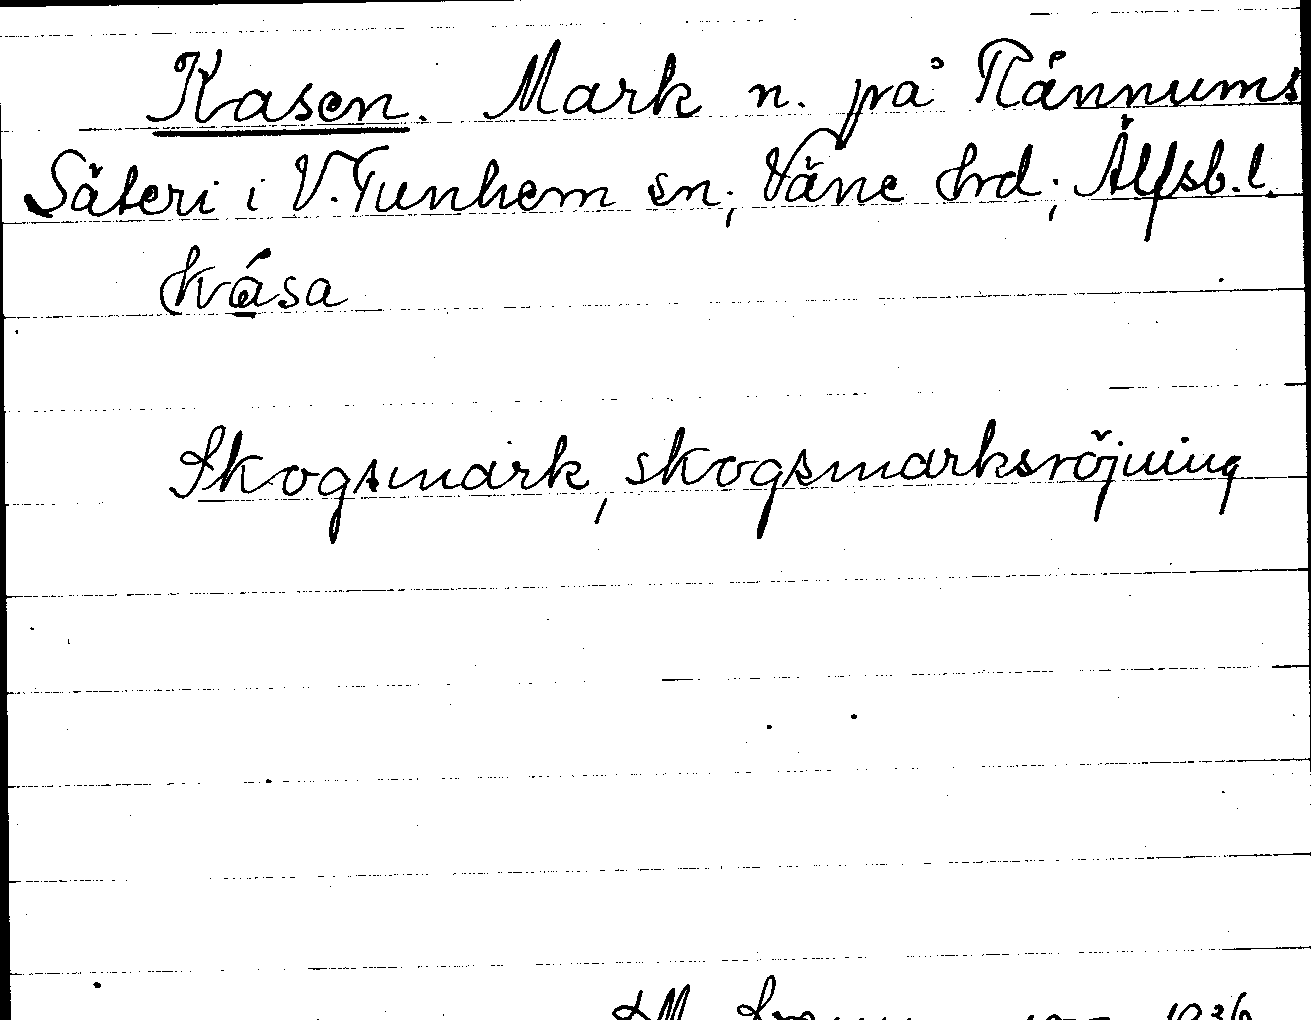 Kasen. Mark n. på Rånnums
Säteri i V. Tunhem sn; Väne hrd; Älfsb. l.
kása
Skogsmark, skogsmarksröjning
1936